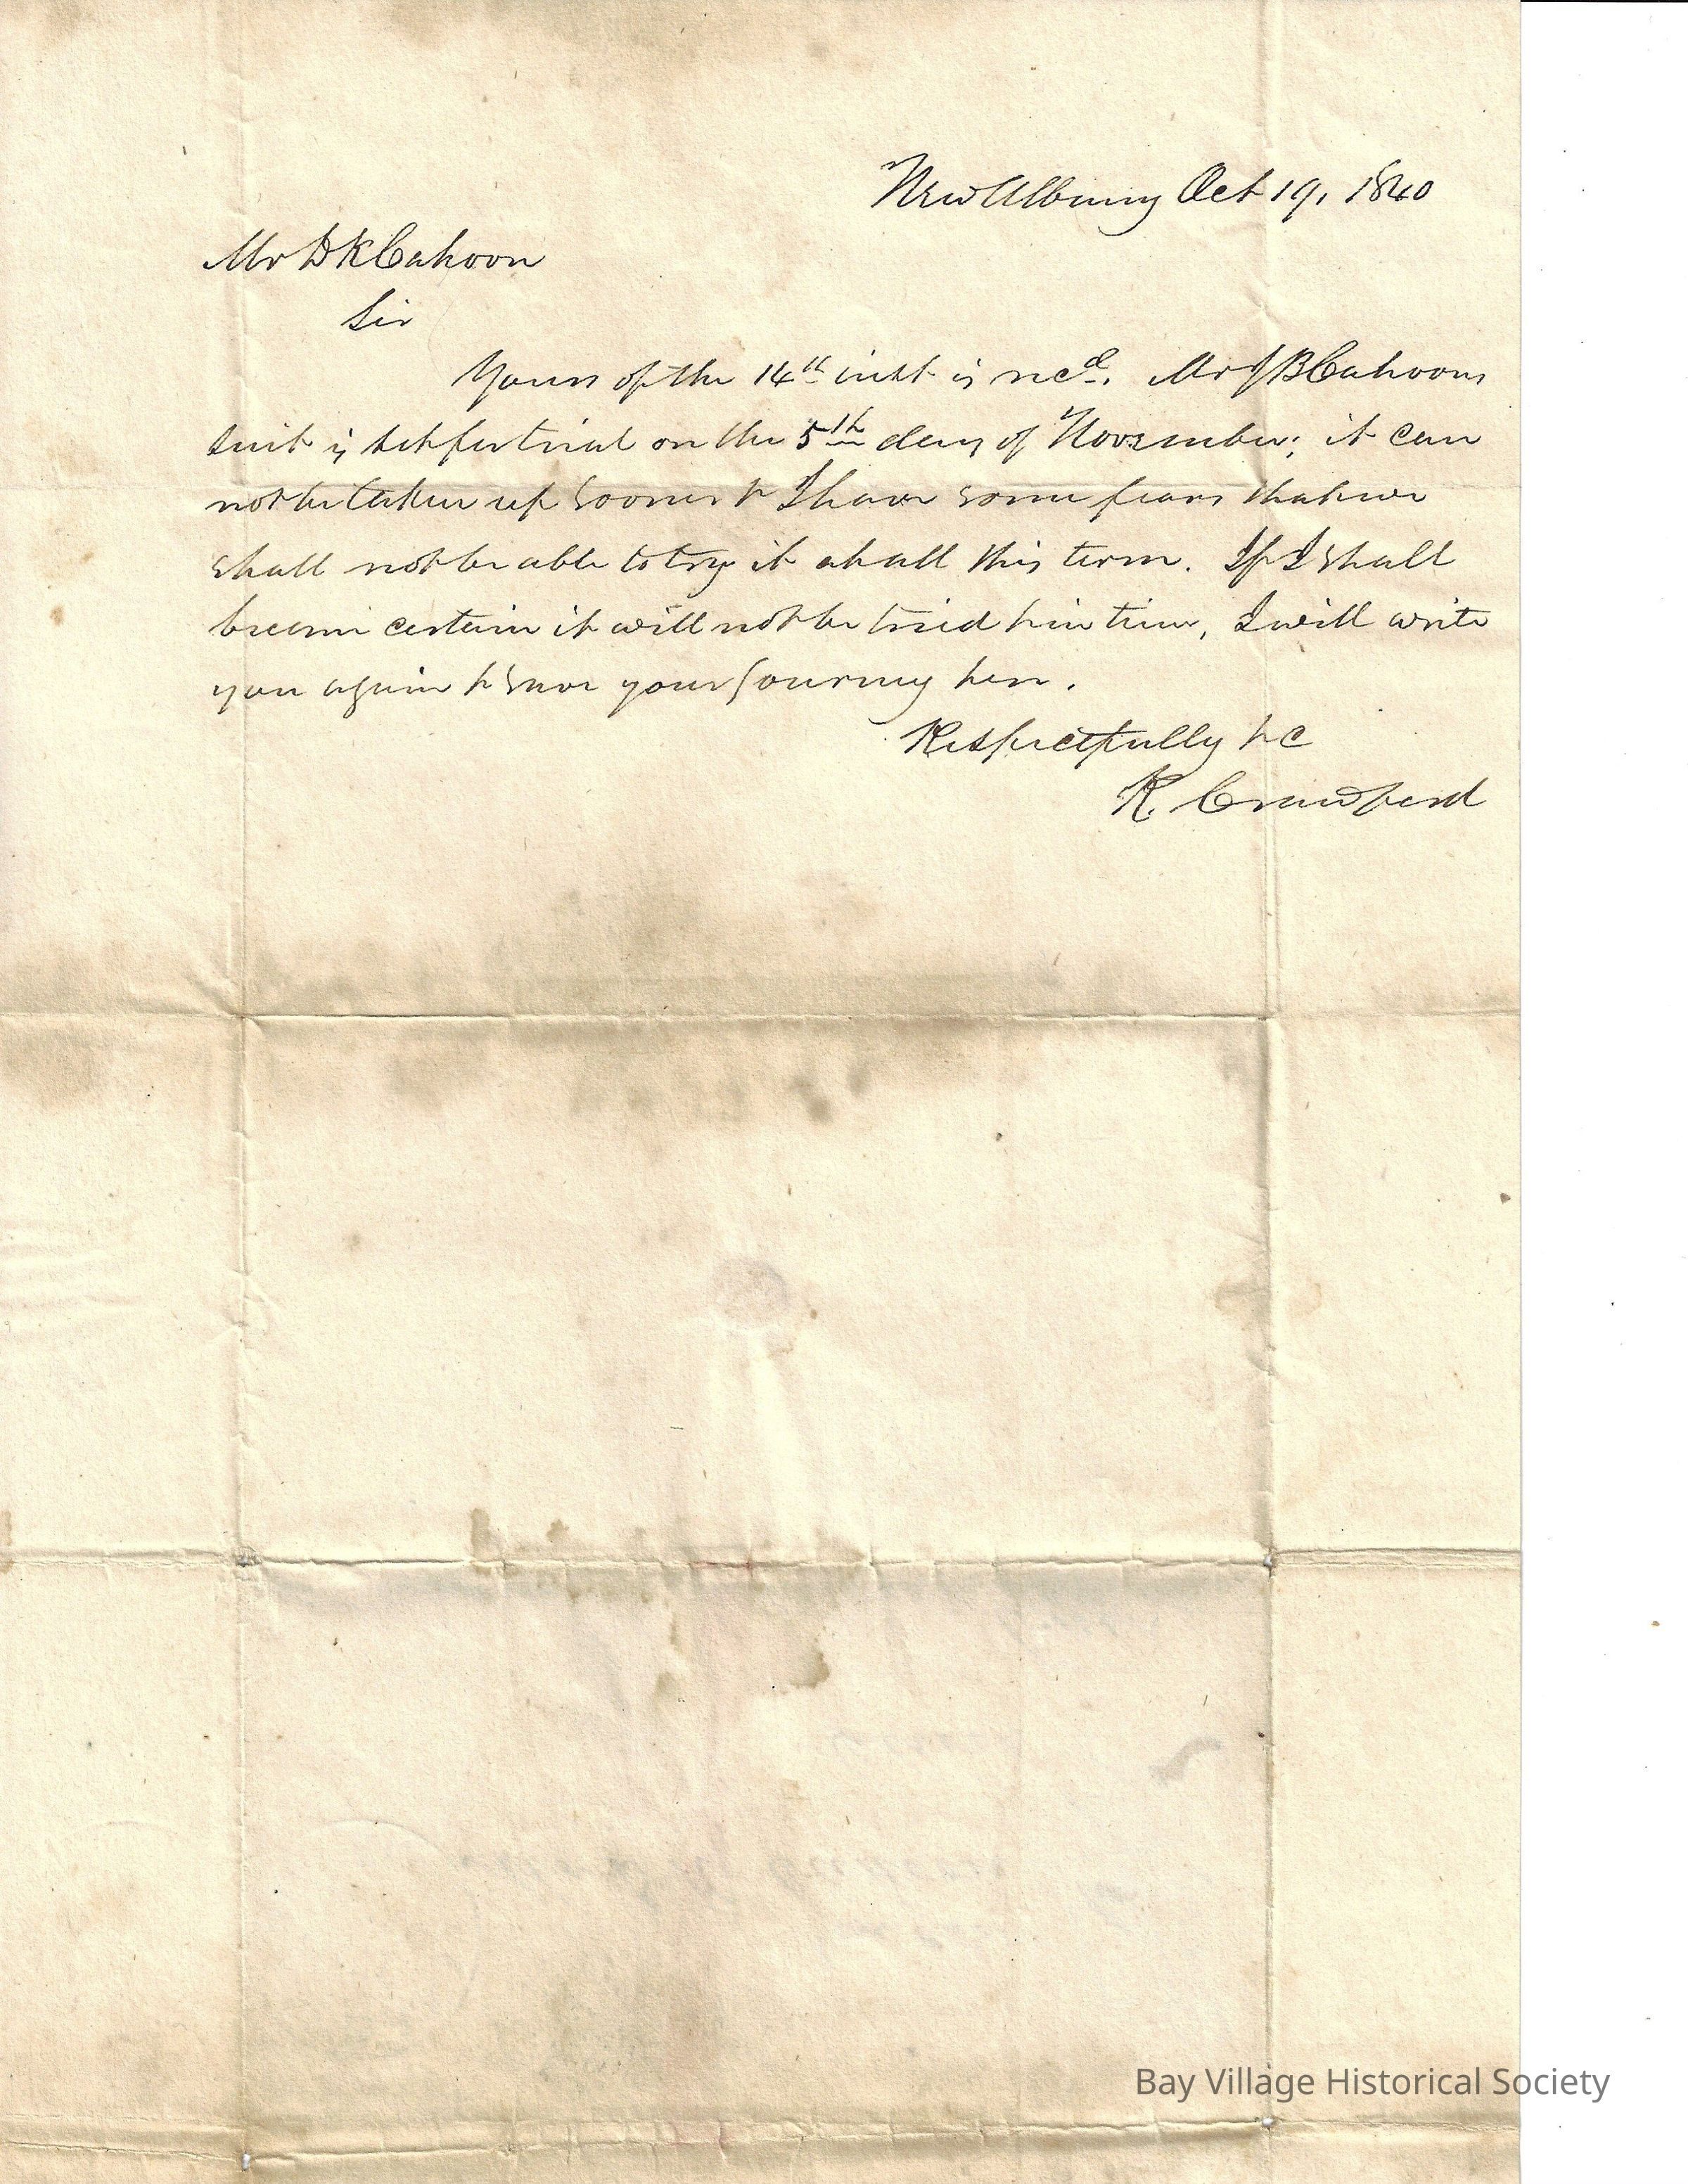 New Albany Oct 19, 1840
Mr D K Cahoon
Sir
Yours of the 14th inst is recd. Mr J B Cahoons
suit is set for trial on the 5th day of November; it can
not be taken up sooner & I have some fears that we
shall not be able to try it at all this term. If I shall
become certain it will not be tried & in time, I will write
you again & save your journey here.
Respectfully &c
R. Crawford
Bay Village Historical Society